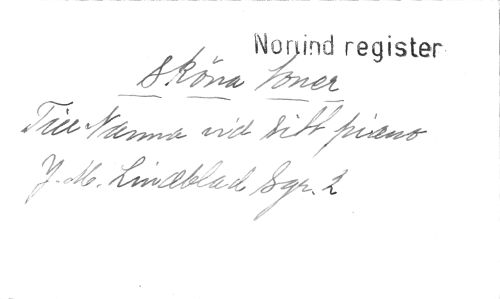 Norlind register
Sköna toner
Till Nanna vid sitt piano
J. M. Lindblad Sgr. 2